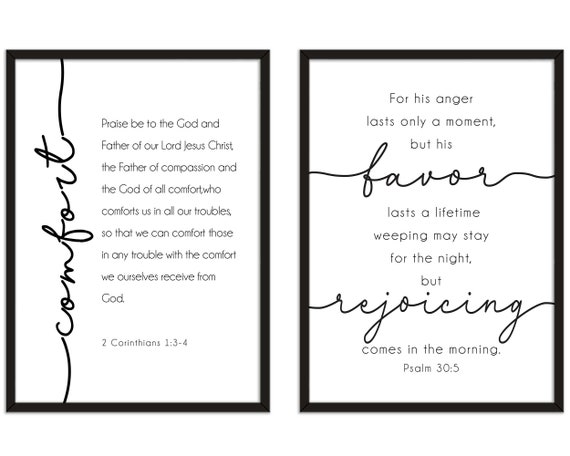 comfort
Praise be to the God and
Father of our Lord Jesus Christ,
the Father of compassion and
the God of all comfort,who
comforts us in all our troubles,
so that we can comfort those
in any trouble with the comfort
we ourselves receive from
God.
2 Corinthians 1:3-4
For his anger
lasts only a moment,
but his
favor
lasts a lifetime
weeping may stay
for the night,
but
rejoicing
comes in the morning.
Psalm 30:5